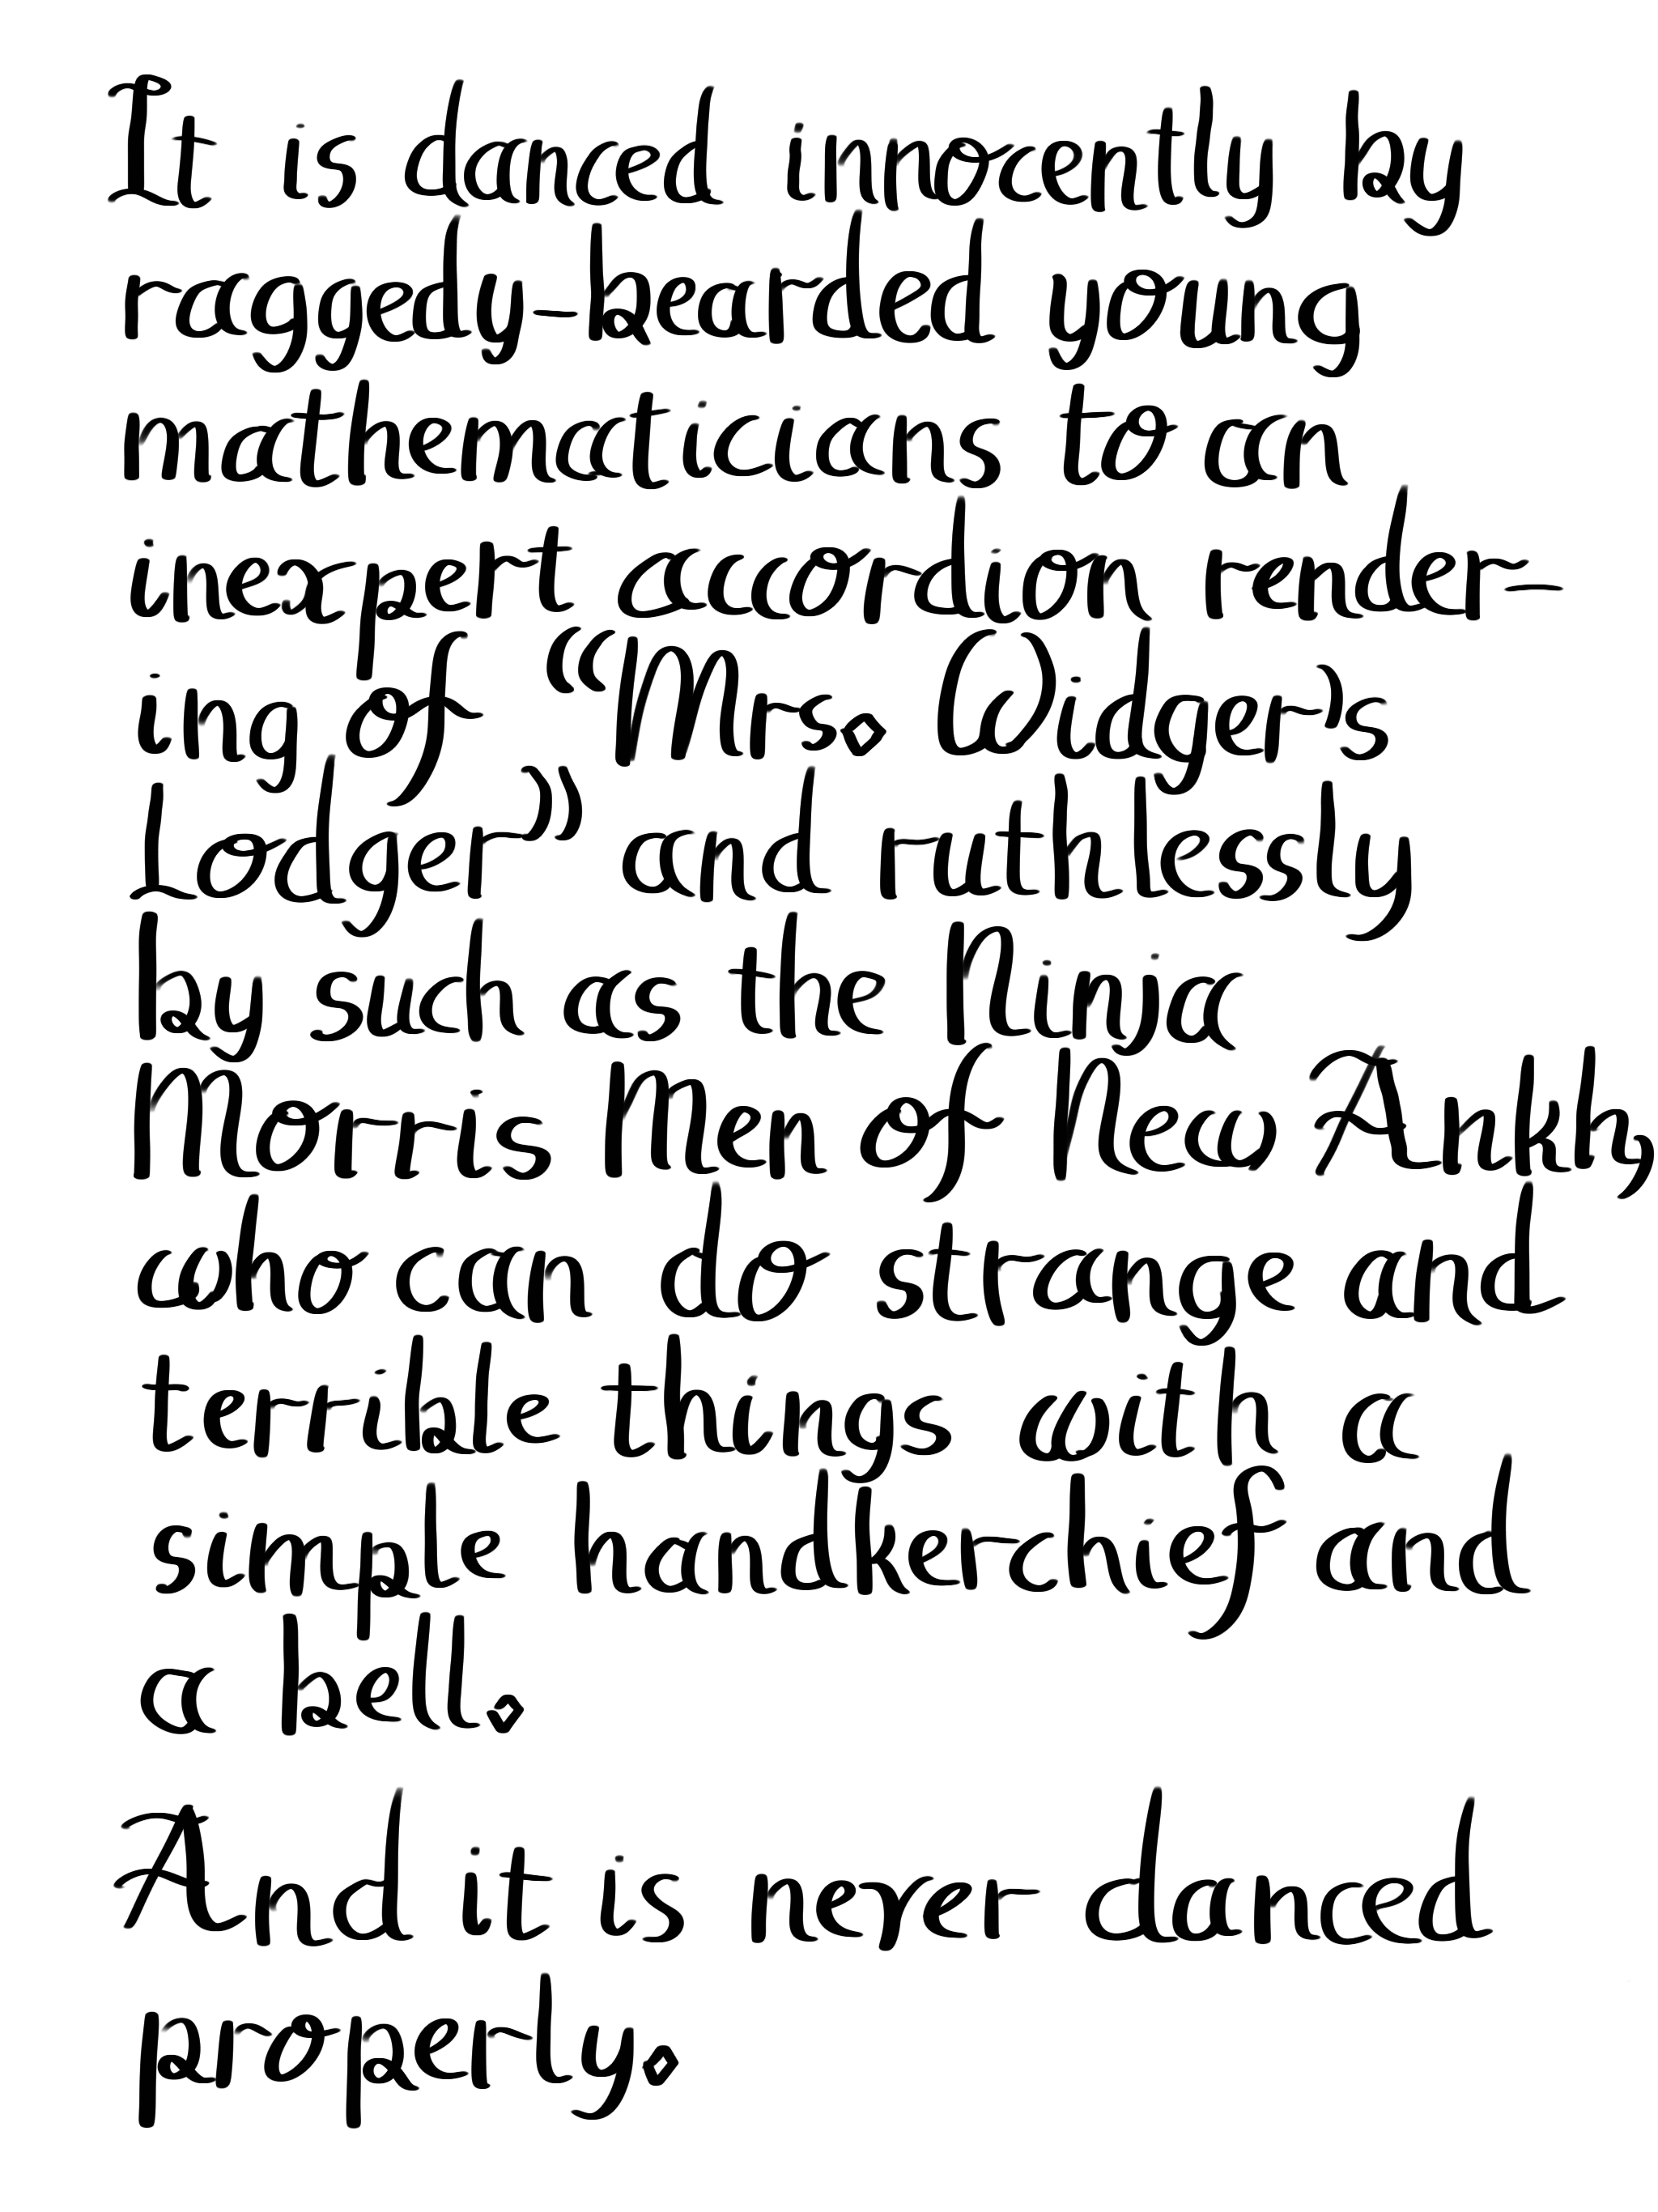 It is danced innocently by
raggedy-bearded young
mathematicians to an
inexpert accordion render-
ing of “Mrs. Widger’s
Lodger” and ruthlessly
by such as the Ninja
Morris Men of New Ankh,
who can do strange and
terrible things with a
simple handkerchief and
a bell.
And it is never danced
properly.